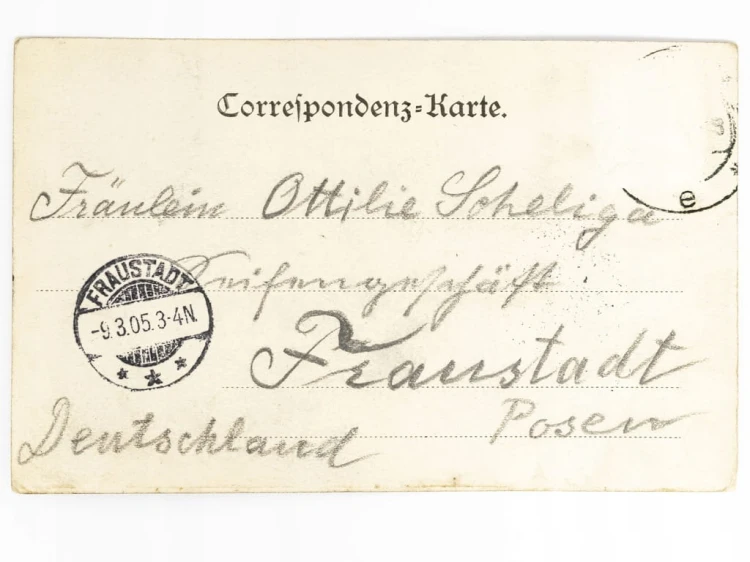 Correspondenz-Karte.
Fräulein Ottilie Scheliga
Seifengeschäft
Fraustadt
Posen
Deutschland
FRAUSTADT
-9.3.05.3-4N.
* * *
s
e *